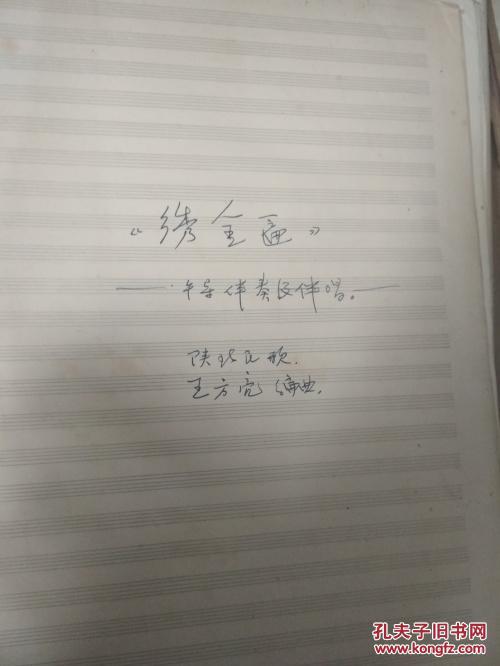 《绣金匾》
伴奏及伴唱。
陕北民歌.
王方亮编曲.
孔夫子旧书网
www.kongfz.com